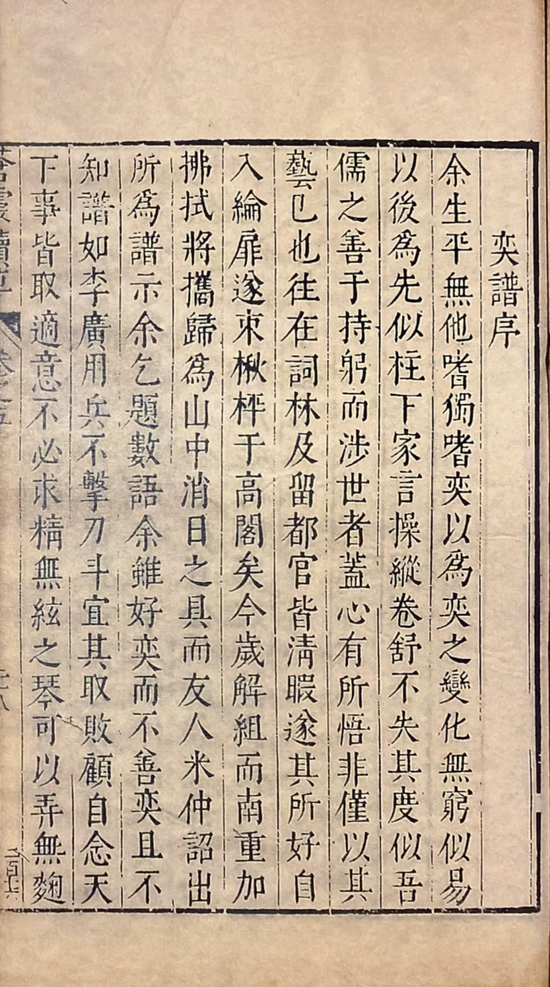 奕譜序
余生平無他嗜獨嗜奕以為奕之變化無窮似易
以後為先似柱下家言操縱卷舒不失其度似吾
儒之善于持躬而涉世者蓋心有所悟非僅以其
藝已也往在詞林及留都官皆清暇遂其所好自
入綸扉遂束楸枰于高閣矣今歲解組而南重加
拂拭將攜歸為山中消日之具而友人米仲詔出
所為譜示余乞題數語余雖好奕而不善奕且不
知譜如李廣用兵不擊刀斗宜其取敗顧自念天
下事皆取適意不必求精無絃之琴可以弄無麴
蒼霞續草 卷之五